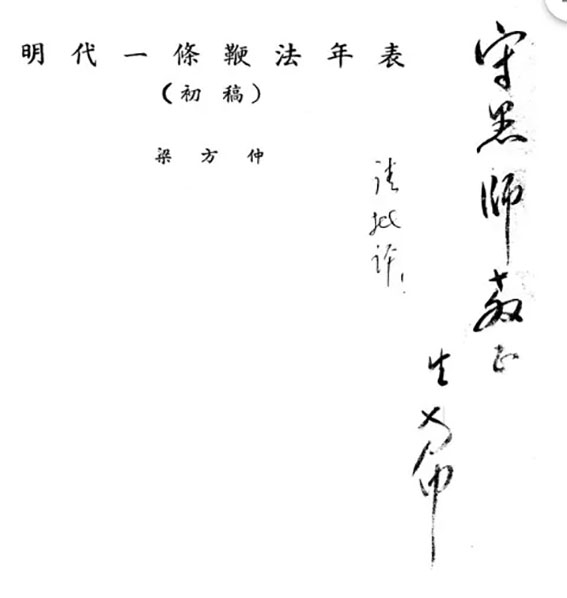 明代一條鞭法年表
（初稿）
梁方仲
守愚師教正
生方仲
请批评！